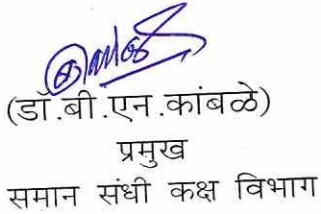 (डॉ.बी.एन.कांबळे)
प्रमुख
समान संधी कक्ष विभाग